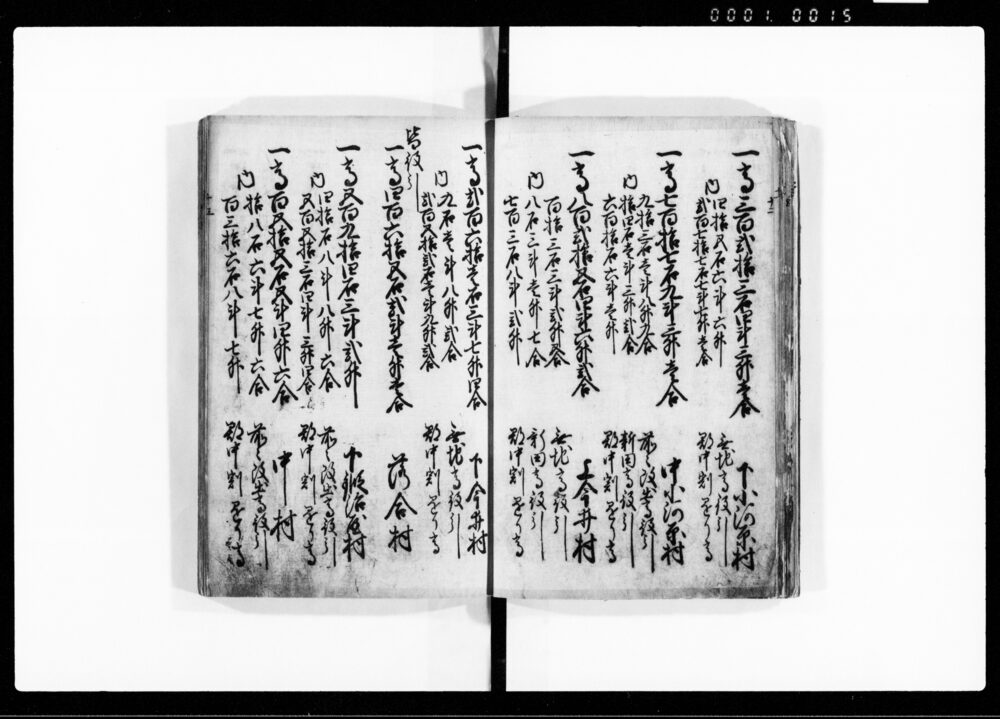 0001. 0015
一高三百弐拾三石四斗三升壱合 下小河原村
内 四拾五石六斗六升 無地高役引
弐百七拾七石七斗七升壱合 郡中割掛り高
一高七百拾七石九斗三升壱合 中小河原村
九拾三石壱斗八升九合 前々改出高役引
内 拾四石壱斗三升弐合 新田高役引
六百拾石六斗壱升 郡中割掛り高
一高八百弐拾五石四斗六升弐合 上今井村
百拾三石三斗弐升五合 無地高役引
内 八石三斗壱升七合 新田高役引
七百三石八斗弐升 郡中割掛り高
一高弐百六拾壱石三斗七升四合 下今井村
内 九石壱斗八升弐合 無地高役引
弐百五拾弐石壱斗九升弐合 郡中割掛り高
皆役引
一高四百六拾五石弐斗壱升壱合 落合村
一高五百九拾四石三斗弐升 下鍛冶屋村
内 四拾石八斗八升六合 前々改出高役引
五百五拾三石四斗三升四合 郡中割掛り高
一高百五拾五石五斗四升六合 中村
内 拾八石六斗七升六合 前々改出高役引
百三拾六石八斗七升 郡中割掛り高